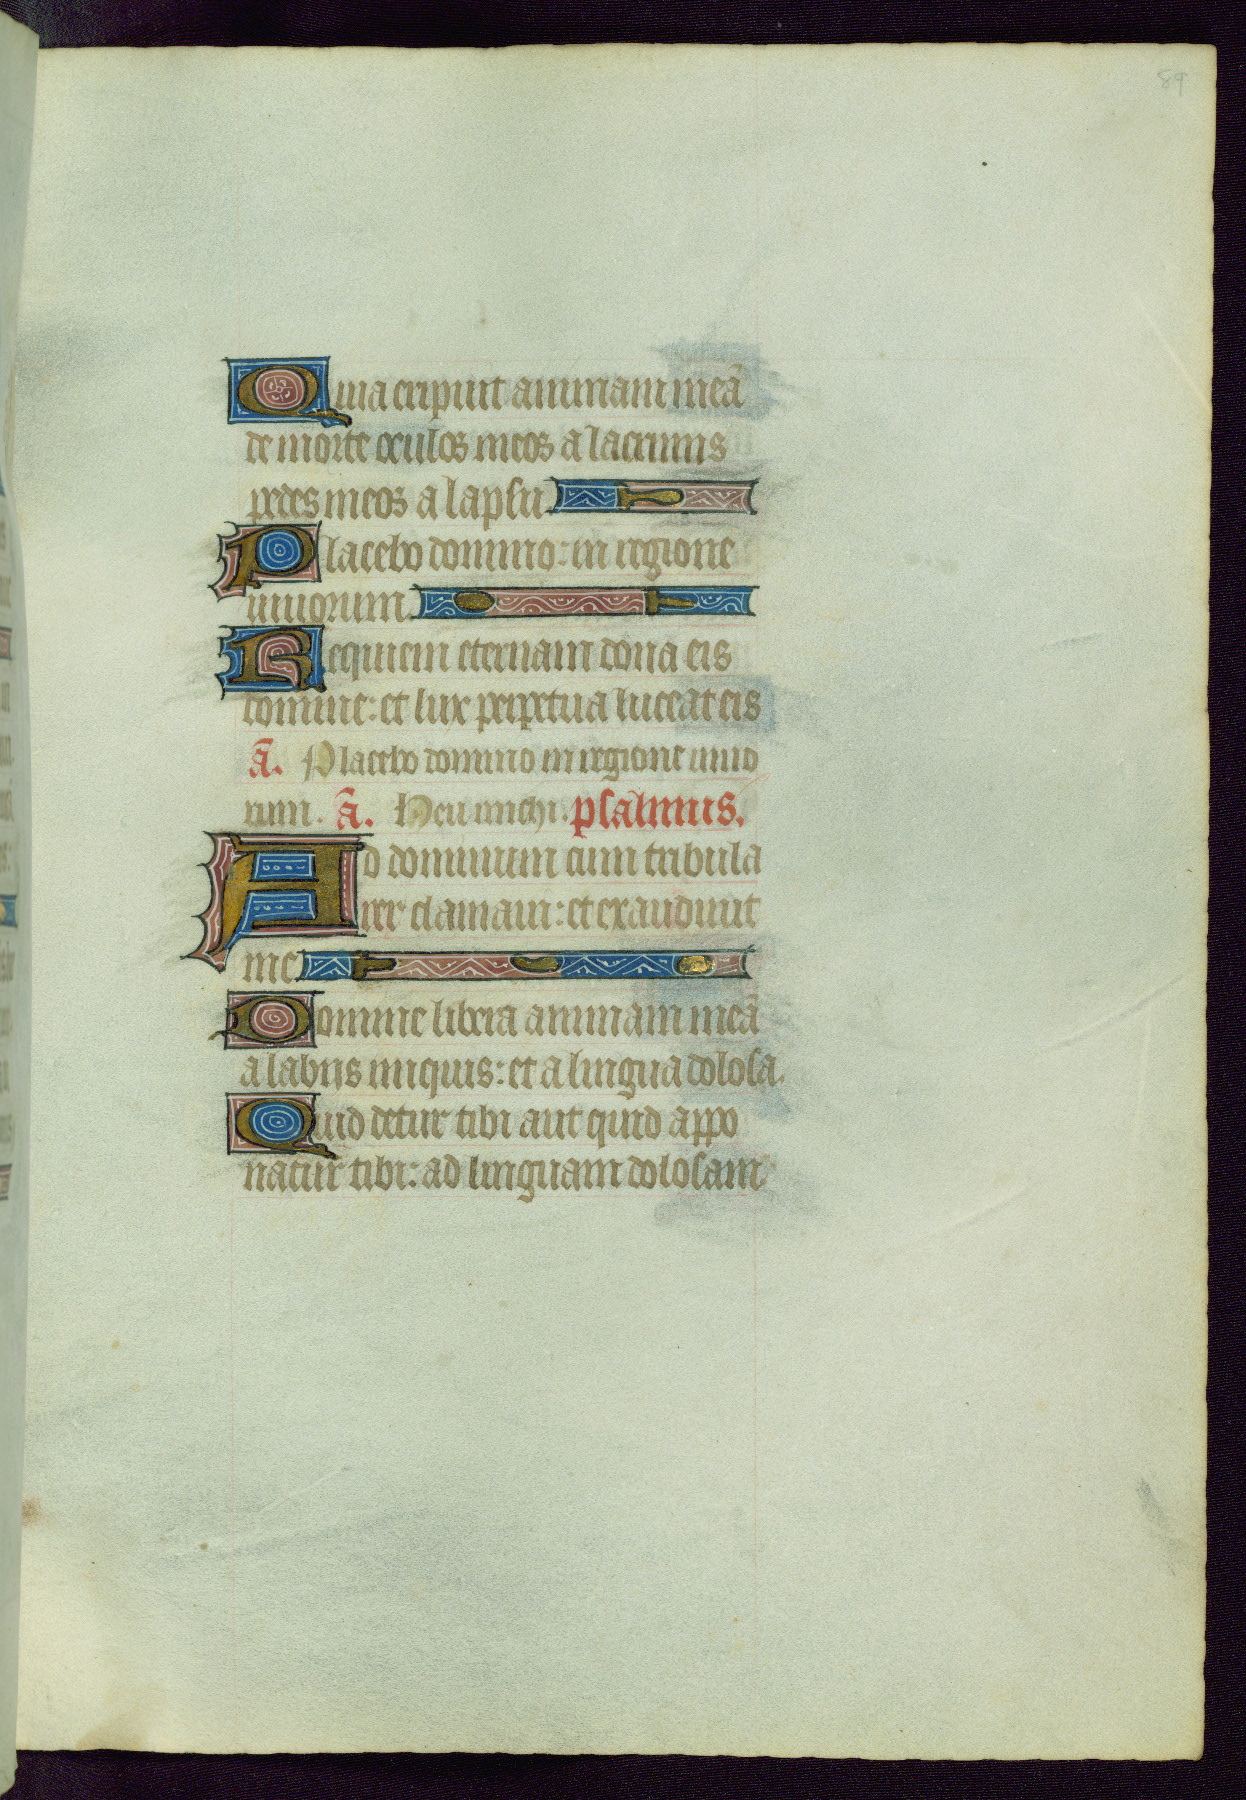 89
Quia eripuit animam meā
de morte oculos meos a lacrimis
pedes meos a lapsu.
Placebo domino: in regione
uiuorum.
Requiem eternam dona eis
domine: et lux perpetua luceat eis
ā. Placebo domino in regione uiuo
rum. ā. Heu michi. psalmus.
Ad dominum cum tribula
rer clamaui: et exaudiuit
me.
Domine libera animam meā
a labiis iniquis: et a lingua dolosa.
Quid detur tibi aut quid appo
natur tibi: ad linguam dolosam